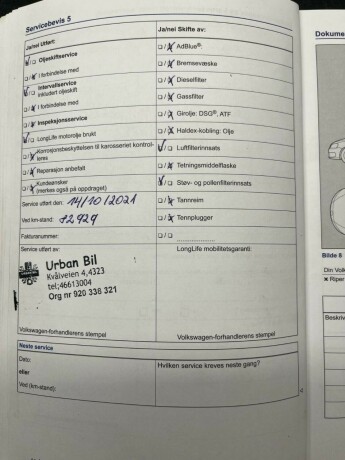 Servicebevis 5
Ja/nei Utført:
Oljeskiftservice
I forbindelse med
Intervallservice
inkludert oljeskift
I forbindelse med
Inspeksjonsservice
LongLife motorolje brukt
Korrosjonsbeskyttelsen til karosseriet kontrol-
leres
Reparasjon anbefalt
Kundeønsker
(merkes også på oppdraget)
Service utført den: 14/10/2021
Ved km-stand:
Fakturanummer:
Service utført av:
Urban Bil
Kvålveien 4,4323
tel;46613004
Org nr 920 338 321
Volkswagen-forhandlerens stempel
Ja/nei Skifte av:
AdBlue®:
Bremsevæske
Dieselfilter
Gassfilter
Girolje: DSG®, ATF
Haldex-kobling: Olje
Luftfilterinnsats
Tetningsmiddelflaske
Støv- og pollenfilterinnsats
Tannreim
Tennplugger
LongLife mobilitetsgaranti:
Volkswagen-forhandlerens stempel
Neste service
Dato:
eller
Ved (km-stand):
Hvilken service kreves neste gang?
Dokume
Bilde 8
Din Vol
× Riper
Beskriv